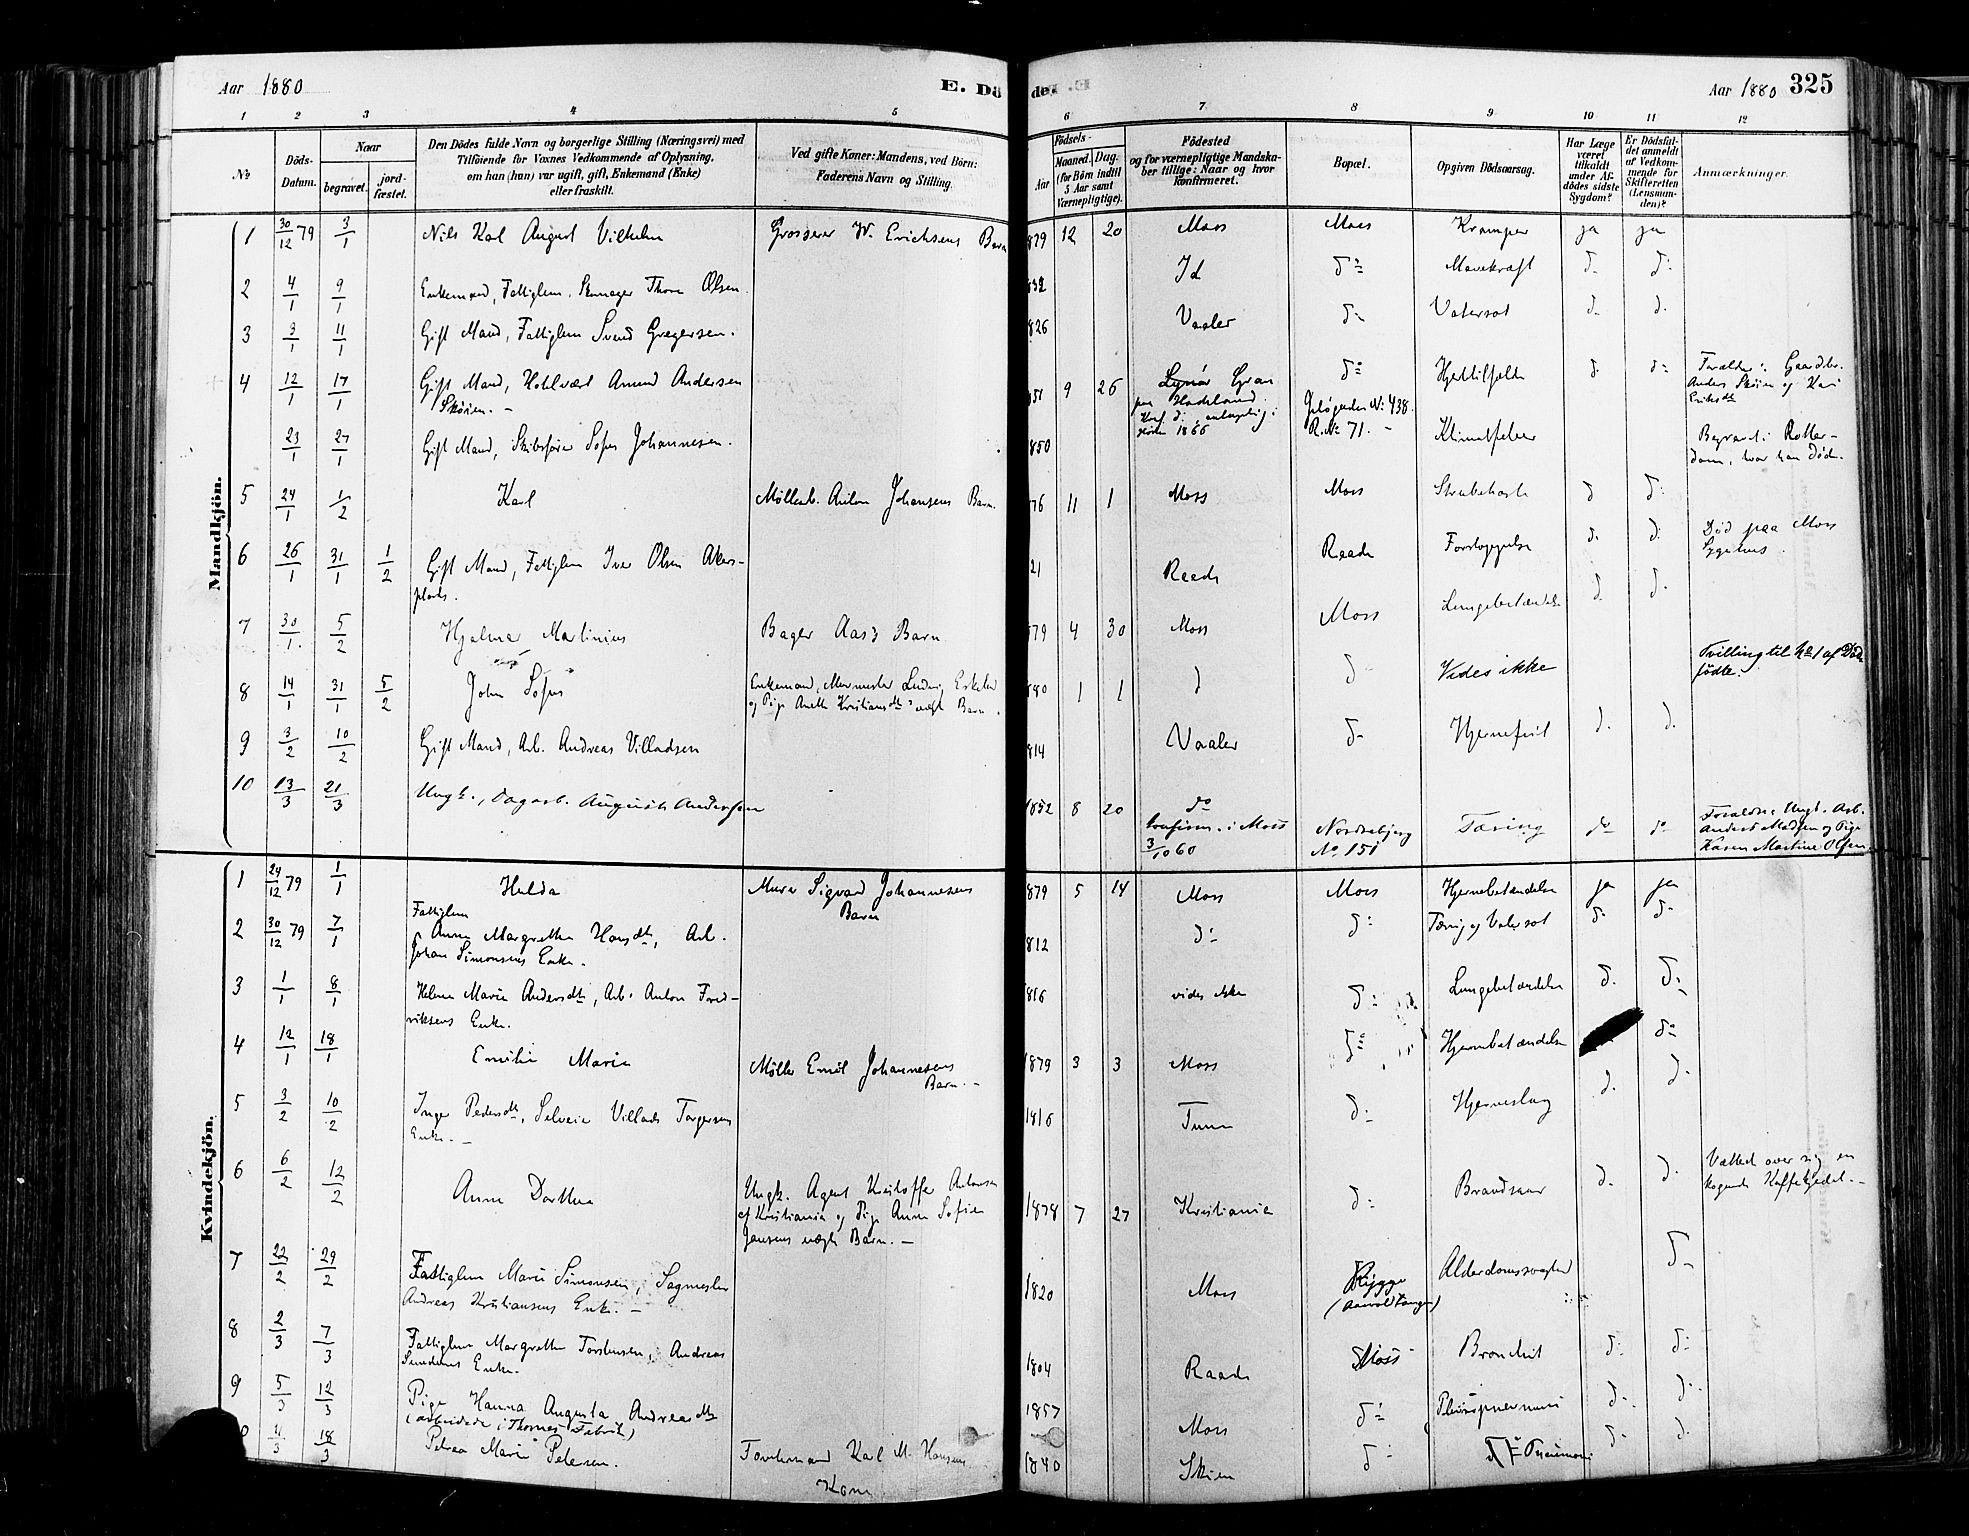 Aar 1880
E. Dö
de.
Aar 1880 325
1 2 3 4 5 6 7 8 9 10 11 12
No
Döds-Datum.
Naar
begravet.
jord-fæstet.
Den Dödes fulde Navn og borgerlige Stilling (Næringsvei) med
Tilföiende for Voxnes Vedkommende af Oplysning,
om han (hun) var ugift, gift, Enkemand (Enke)
eller fraskilt.
Ved gifte Koner: Mandens, ved Börn:
Faderens Navn og Stilling.
Födsels-
Aar
Maaned. Dag.
(for Börn indtil
5 Aar samt
Værnepligtige).
Födested
og for værnepligtige Mandska-
ber tillige: Naar og hvor
Konfirmeret.
Bopæl.
Opgiven Dödsaarsag.
Har Læge
været
tilkaldt
under Af-
dödes sidste
Sygdom?
Er Dödsfal-
det anmeldt
af Vedkom-
mende for
Skifteretten
(Lensman-
den)?
Anmærkninger.
Mandkjön.
1 30/12 79 3/1 Nils Karl August Vilhelm Grosserer W. Erichsens Barn 879 12 20 Moss Moss Kramper ja ja
2 4/1 9/1 Enkemand, Fattiglem, Skomager Thore Olsen 832 Id do Mavekræft d. d.
3 3/1 11/1 Gift Mand, Fattiglem Svend Gregersen. 826 Vaaler do Vatersot d. d.
4 12/1 17/1 Gift Mand, Hotelvært Amund Andersen
Skøien. – 851 9 26 Gran
paa Hadeland.
1866 do
No 438.
R.No 71. – Hjertetilfælde d. do Forældre: Gaardbr.
Anders Skøien og Kari
Eriksdtr
23/1 27/1 Gift Mand, Skibsfører Sofus Johannesen. 850 Klimatfeber Begravet i Rotter-
dam, hvor han døde.
5 24/1 1/2 Karl Møllerb. Anton Johansens Barn. 876 11 1 Moss Moss Strubehoste d d.
6 26/1 31/1 1/2 Gift Mand, Fattiglem Iver Olsen Akers-
plads. 21 Raade Raade Forstoppelse d. d. Död paa Moss
Sygehus.
7 30/1 5/2 Hjalmar Martinius Bager Aas's Barn 879 4 30 Moss Moss Lungebetændelse d. d.
8 14/1 31/1 5/2 John Sofus Enkemand, Murmester Ludvig
og Pige Anette Kristiansdtr uægte Barn. 880 1 1 d d Vides ikke Tvilling til No 1 af Död-
födte.
9 3/2 10/2 Gift Mand, Arb. Andreas Villadsen 814 Vaaler do d. d.
10 13/3 21/3 Ungk., Dagarb. August Andersen 1852 8 20 do
konfirm. i Moss
3/10 60 Nordrebjerg
No 151 Tæring do do Forældre: Ungk. Arb.
Anders Madsen og Pige
Karen Martine Olsen
Kvindekjön.
1 24/12 79 1/1 Hulda Murer Sigvard Johannesens
Barn 879 5 14 Moss Moss Hjernebetændelse ja ja
2 30/12 79 7/1 Fattiglem
Anne Margrethe Hansdtr, Arb.
Johan Simonsens Enke. 812 do do Tæring og Vatersot do do
3 1/1 8/1 Helene Marie Andersdtr, Arb. Anton Fred-
riksens Enke. 816 vides ikke do Lungebetændelse d. do
4 12/1 18/1 Emilie Marie Møller Emil Johannesens
Barn. – 1879 3 3 Moss do Hjernebetændelse do
5 3/2 10/2 Inger Pedersdtr, Selveier Villads Torgersens
Enke. – 1816 Tune do Hjerneslag d. d.
6 6/2 12/2 Anne Dorthea Ungk. Agent Kristoffer Antonsen
af Kristiania og Pige Anne Sofie
Jansens uægte Barn. – 1878 7 27 Kristiania do Brandsaar d. d. Væltede over sig en
kogende Kaffekjedel. –
7 22/2 29/2 Fattiglem Marie Simonsen, Sagmester
Andreas Kristiansens Enke. – 1820 Moss Rygge
Alderdomssvaghed do
8 2/3 7/3 Fattiglem Margrethe Torstensen, Andreas
Enke. 1804 Raade Moss Bronchit d. d.
9 5/3 12/3 Pige Hanna Augusta Andreasdtr
(arbeidede i Thornes Fabrik) 1857 Moss do Pleuropneumoni d. d.
4/3 18/3 Petrea Marie Petersen. Karl M. Hansens
Kone 1840 Skien do Pneumoni d. d.